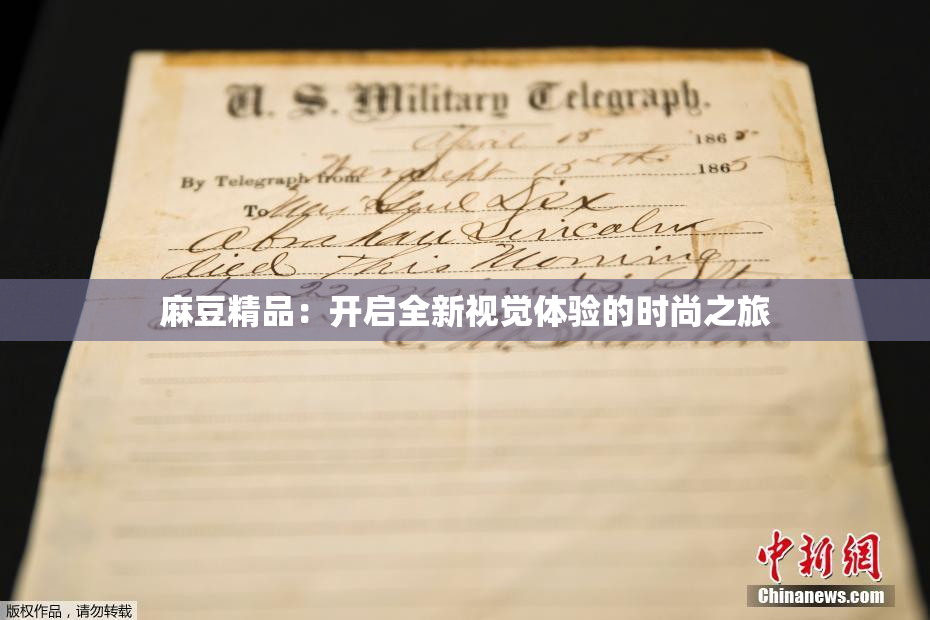 U. S. Military Telegraph.
April 15 1865
By Telegraph from War Dept 15th 1865
To Maj Genl Dix
Abraham Lincoln
died This Morning
at 22 minutes after
麻豆精品：开启全新视觉体验的时尚之旅
E. M. Stanton
中新網
Chinanews.com
版权作品，请勿转载